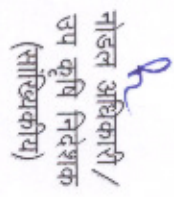 नोडल अधिकारी/
उप कृषि निदेशक
(सांख्यिकीय)